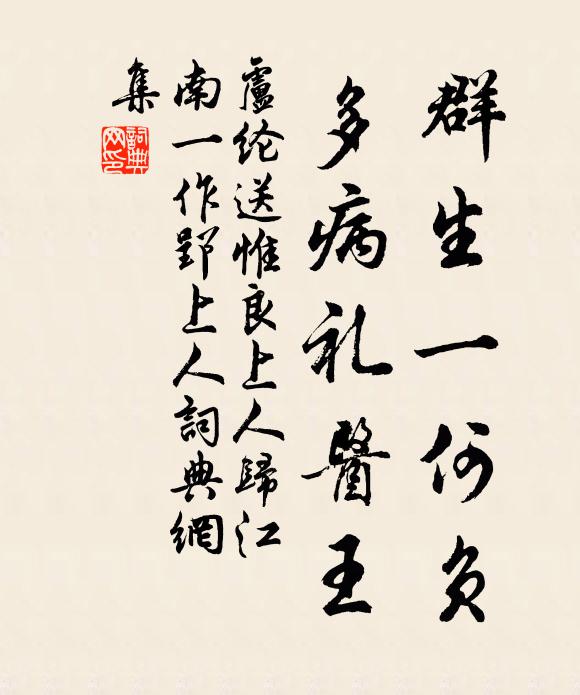 群生一何负
多病礼醫王
盧纶送惟良上人歸江
南一作郢上人詞典網
集
詞典网印